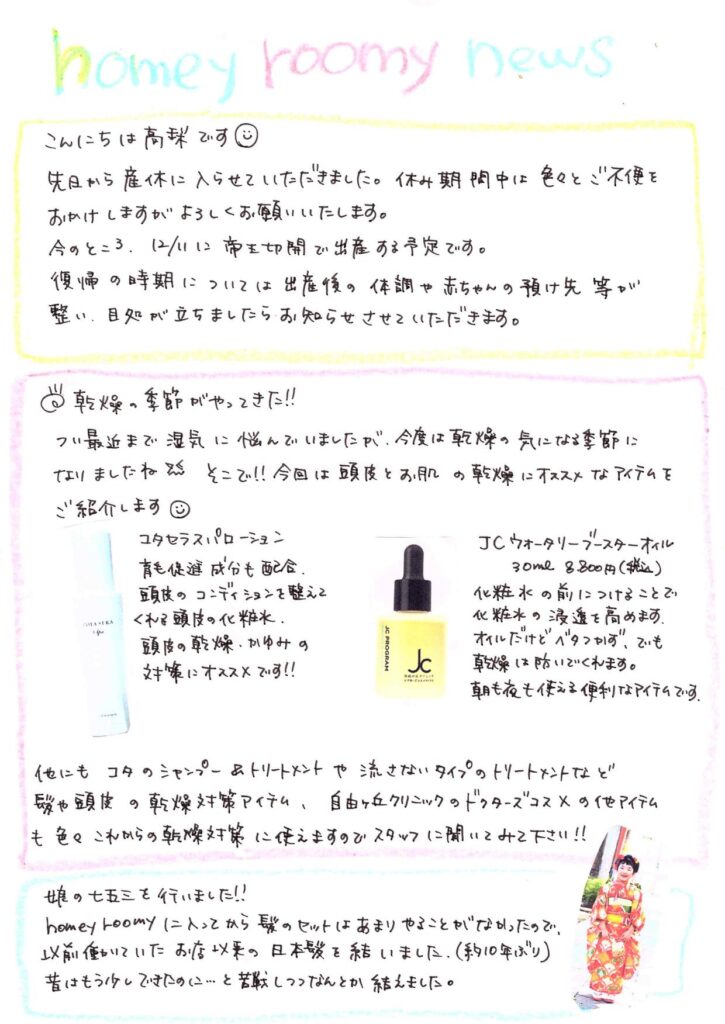 homey roomy news
こんにちは高梨です
先日から産休に入らせていただきました。休み期間中は色々とご不便を
おかけしますがよろしくお願いいたします。
今のところ、12/11に帝王切開で出産する予定です。
復帰の時期については出産後の体調や赤ちゃんの預け先等が
整い、目処が立ちましたらお知らせさせていただきます。
乾燥の季節がやってきた!!
つい最近まで湿気に悩んでいましたが、今度は乾燥の気になる季節に
なりましたね そこで!!今回は頭皮とお肌の乾燥にオススメなアイテムを
ご紹介します
コタセラスパローション
育毛促進成分も配合。
頭皮のコンディションを整えて
くれる頭皮の化粧水。
頭皮の乾燥・かゆみの
対策にオススメです!!
JC PROGRAM
Jc
JCウォータリーブースターオイル
30ml 8,800円(税込)
化粧水の前につけることで
化粧水の浸透を高めます。
オイルだけどベタつかず、でも
乾燥は防いでくれます。
朝も夜も使える便利なアイテムです。
他にもコタのシャンプー&トリートメントや流さないタイプのトリートメントなど
髪や頭皮の乾燥対策アイテム、自由ヶ丘クリニックのドクターズコスメの他アイテム
も色々これからの乾燥対策に使えますのでスタッフに聞いてみて下さい!!
娘の七五三を行いました!!
homey roomyに入ってから髪のセットはあまりやることがなかったので、
以前働いていたお店以来の日本髪を結いました。(約10年ぶり)
昔はもう少しできたのに…と苦戦しつつなんとか結えました。